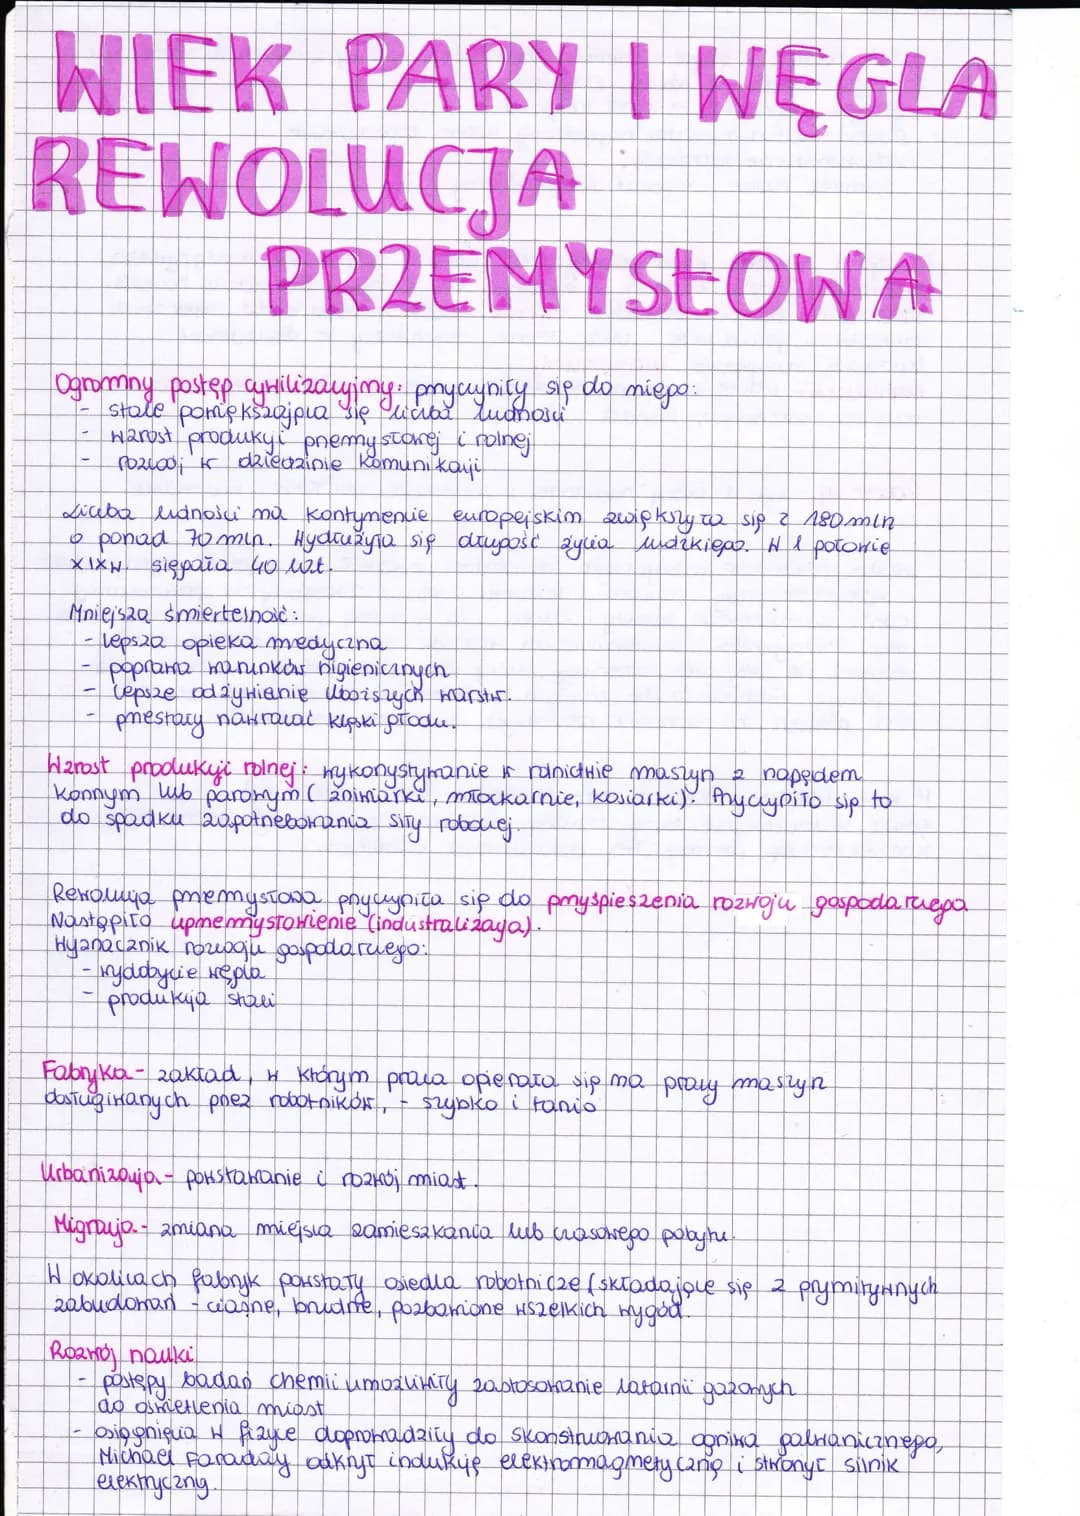 WIEK PARY I WĘGLA
REWOLUCJA
PRZEMYSŁOWA
Ogromny postęp cywilizacyjny: przyczyniły się do niego:
- stale powiększająca się liczba ludności
- wzrost produkcji przemysłowej i rolnej
- rozwój w dziedzinie komunikacji
Liczba ludności na kontynencie europejskim zwiększyła się z 180 mln
o ponad 70 mln. Wydłużyła się długość życia ludzkiego. W I połowie
XIX w. sięgała 40 lat.
Mniejsza śmiertelność:
- lepsza opieka medyczna
- poprawa warunków higienicznych
- lepsze odżywianie uboższych warstw.
- przestały nawracać klęski głodu.
Wzrost produkcji rolnej: wykorzystywanie w rolnictwie maszyn z napędem
konnym lub parowym (żniwiarki, młockarnie, kosiarki). Przyczyniło się to
do spadku zapotrzebowania siły roboczej.
Rewolucja przemysłowa przyczyniła się do przyspieszenia rozwoju gospodarczego
Nastąpiło uprzemysłowienie (industralizacja).
Wyznacznik rozwoju gospodarczego:
- wydobycie węgla
- produkcja stali
Fabryka - zakład, w którym praca opierała się na pracy maszyn
dosługiwanych przez robotników, - szybko i tanio
Urbanizacja - powstawanie i rozwój miast.
Migracja - zmiana miejsca zamieszkania lub czasowego pobytu.
W okolicach fabryk powstały osiedla robotnicze (składające się z prymitywnych
zabudowań - ciasne, brudne, pozbawione wszelkich wygód.
Rozwój nauki
- postępy badań chemii umożliwiły zastosowanie latarni gazowych
do oświetlenia miast
- osiągnięcia w fizyce doprowadziły do skonstruowania ogniwa galwanicznego,
Michael Faraday odkrył indukcję elektromagnetyczną i stworzył silnik
elektryczny.